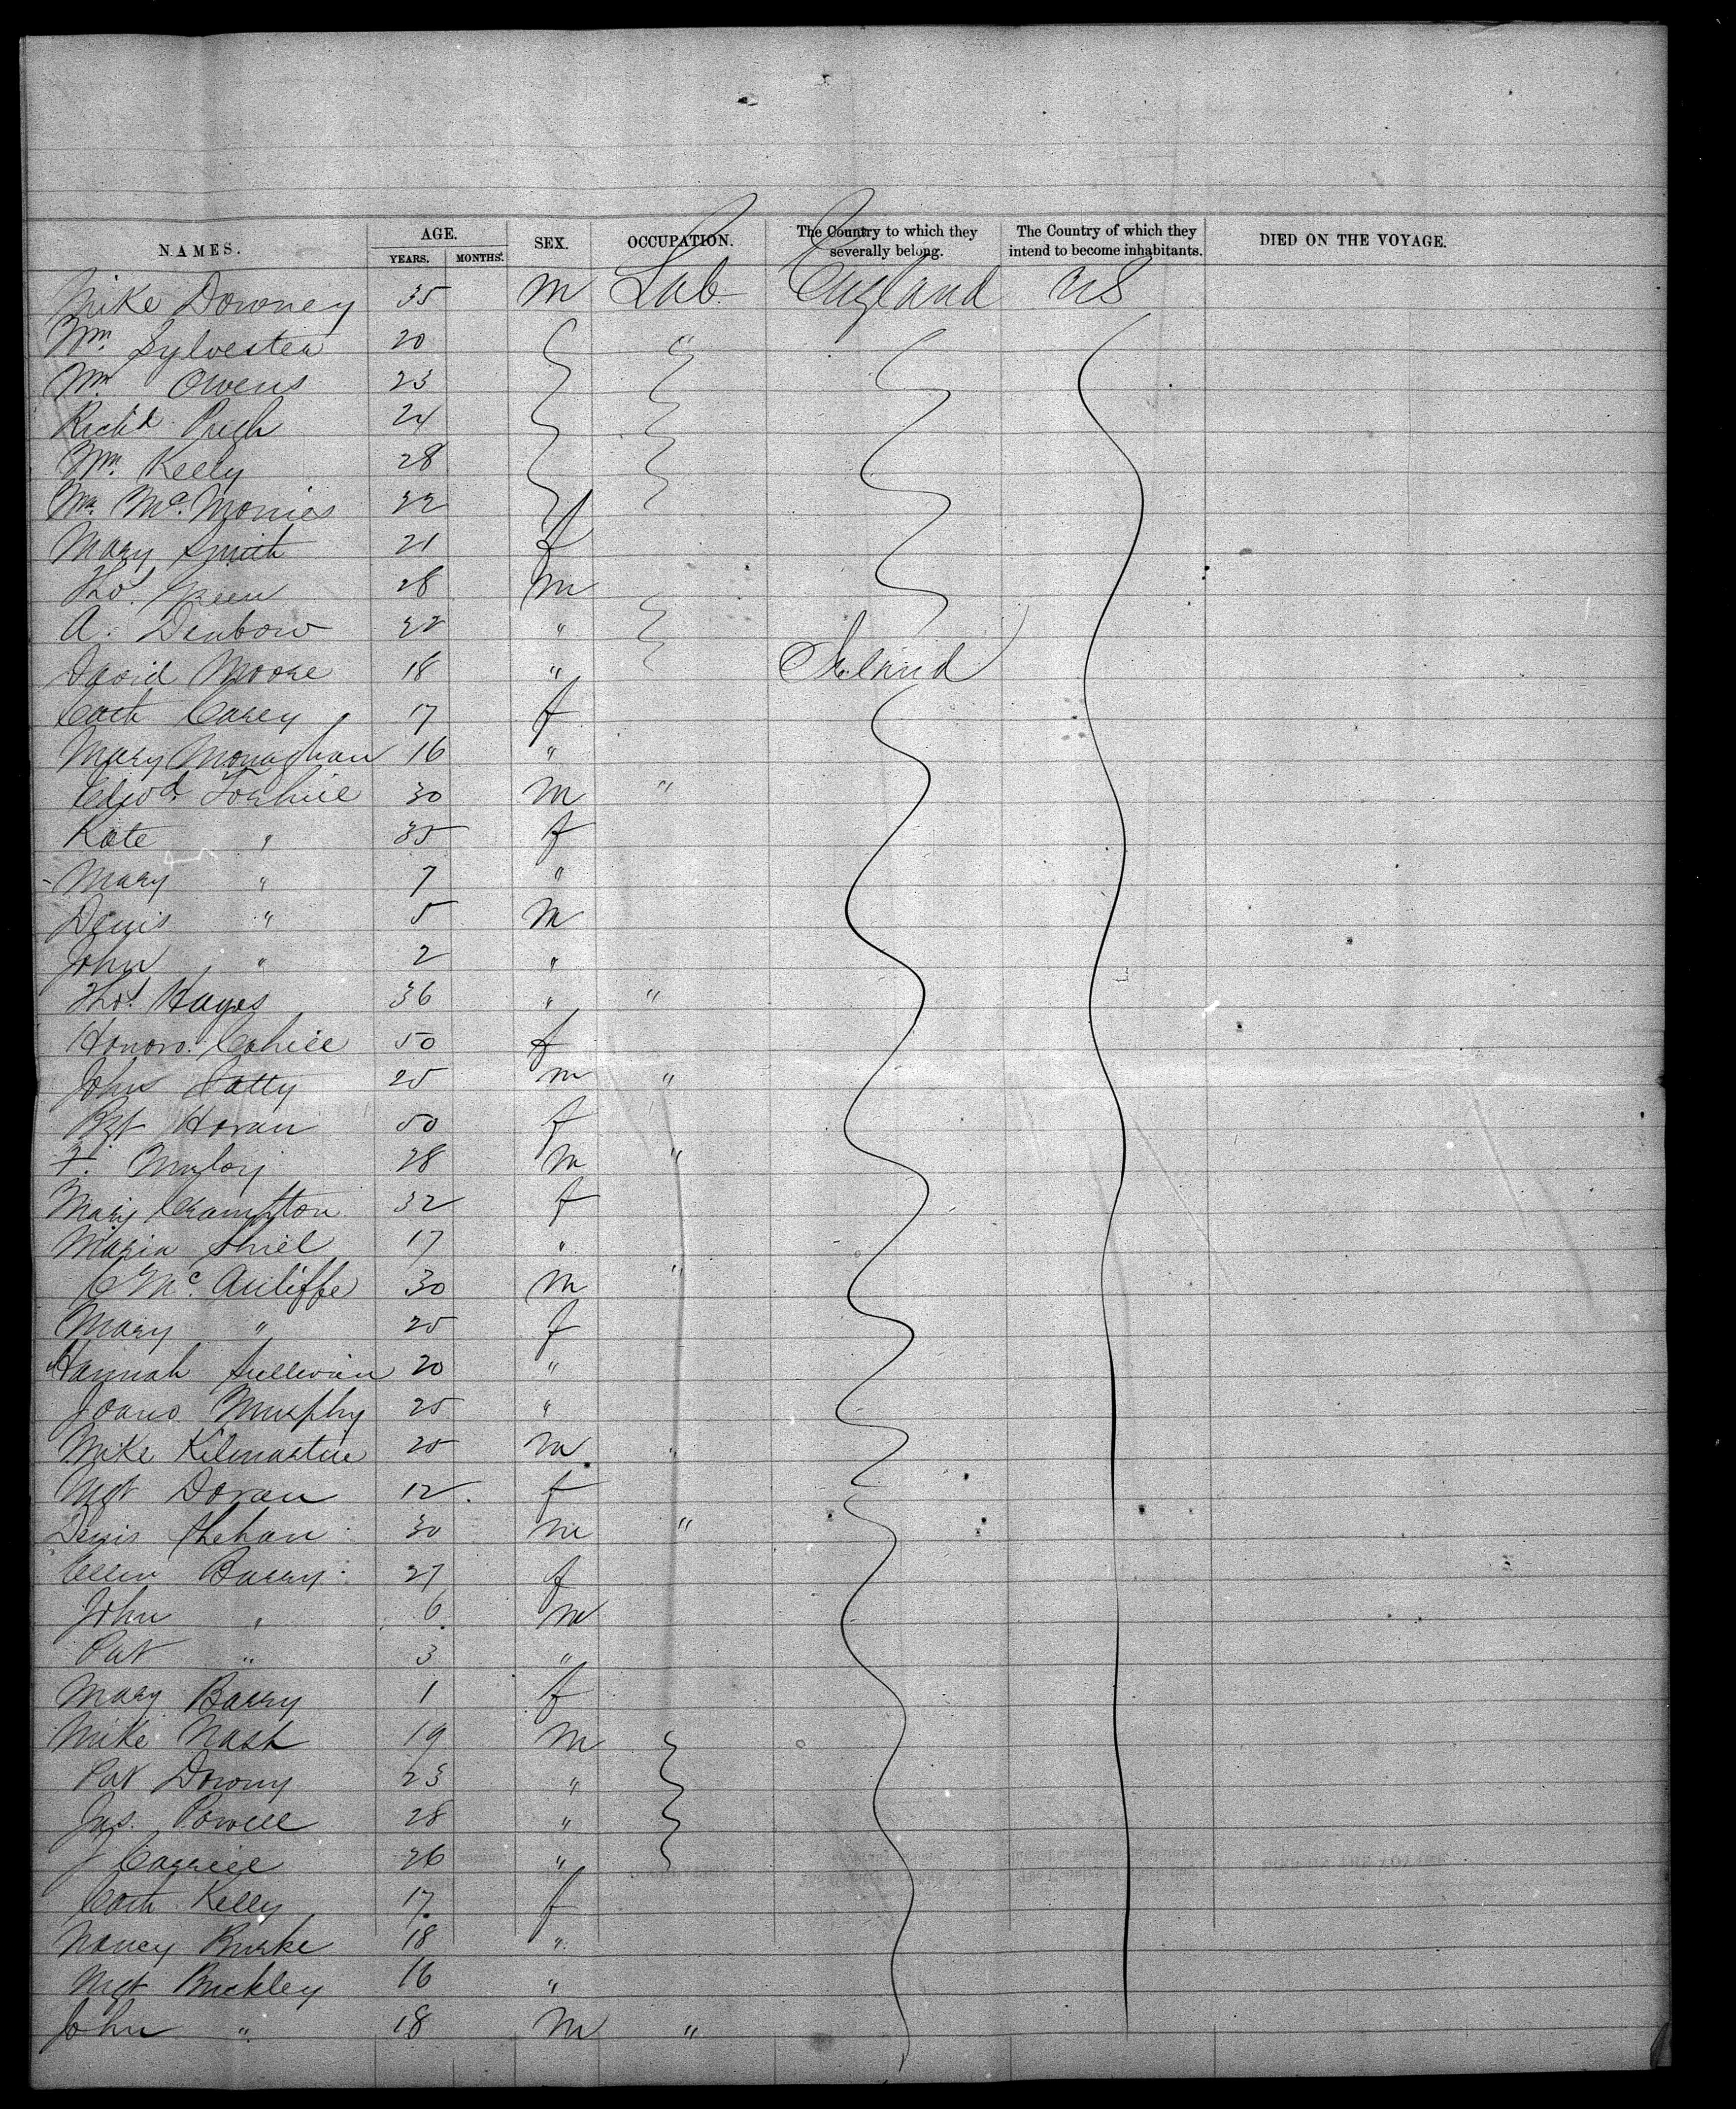 NAMES. AGE. YEARS. MONTHS. SEX. OCCUPATION. The Country to which they severally belong. The Country of which they intend to become inhabitants. DIED ON THE VOYAGE.
Mike Downey 35 m Lab England US
Wm. Sylvester 20 "
Wm. Owens 23
Richd. Pugh 24
Wm. Kelly 28
Wm. McMonies 22
Mary Smith 21 f
Thos. Green 28 m
A. Denbow 22 "
David Moore 18 " Ireland
Cath Carey 17 f
Mary Monaghan 16 "
Edwd. 30 m "
Kate " 35 f
Mary " 7 "
Denis " 5 m
John " 2 "
Thos. Hayes 36 " "
Honora. Cahill 50 f
John Catty 25 m "
Bgt Horan 50 f
F. 28 m "
Mary Crampton 32 f
Maria Shiel 17 "
C McAuliffe 30 m "
Mary " 25 f
Hannah Sullivan 20 "
Joano Murphy 25 "
Mike Kilmartin 20 m "
Mgt Doran 12 f
Denis Shehan 30 m "
Ellen Barry 27 f
John " 6 m
Pat " 3 "
Mary Barry 1 f
Mike Nash 19 m
Pat Downy 23 "
Jas. Powell 28 "
J Carriel 26 "
Cath Kelly 17 f
Nancy Burke 18 "
Mgt Buckley 16 "
John " 18 m "